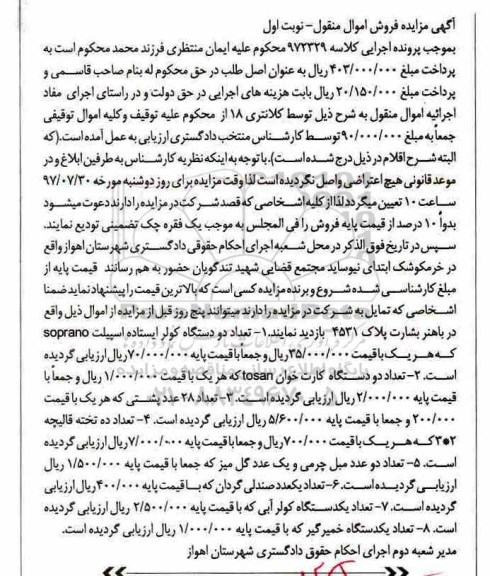 آگهی مزایده فروش اموال منقول- نوبت اول
بموجب پرونده اجرایی کلاسه ۹۷۲۳۲۹ محکوم علیه ایمان منتظری فرزند محمد محکوم است به
پرداخت مبلغ ۴۰۳/۰۰۰/۰۰۰ ریال به عنوان اصل طلب در حق محکوم له بنام صاحب قاسمی و
پرداخت مبلغ ۲۰/۱۵۰/۰۰۰ ریال بابت هزینه های اجرایی در حق دولت و در راستای اجرای مفاد
اجرائیه اموال منقول به شرح ذیل توسط کلانتری ۱۸ از محکوم علیه توقیف وکلیه اموال توقیفی
جمعاً به مبلغ ۹۰/۰۰۰/۰۰۰ توسط کارشناس منتخب دادگستری ارزیابی به عمل آمده است.(که
البته شرح اقلام در ذیل درج شده است).با توجه به اینکه نظریه کارشناس به طرفین ابلاغ و در
موعد قانونی هیچ اعتراضی واصل نگردیده است لذا وقت مزایده برای روز دوشنبه مورخه ۹۷/۰۷/۳۰
ساعت ۱۰ تعیین میگردد لذا از کلیه اشخاصی که قصد شرکت در مزایده را دارند دعوت میشود
بدواً ۱۰ درصد از قیمت پایه فروش را فی المجلس به موجب یک فقره چک تضمینی تودیع نمایند.
سپس در تاریخ فوق الذکر در محل شعبه اجرای احکام حقوقی دادگستری شهرستان اهواز واقع
در خرمکوشک ابتدای نیوساید مجتمع قضایی شهید تندگویان حضور به هم رسانند قیمت پایه از
مبلغ کارشناسی شده شروع و برنده مزایده کسی است که بالاترین قیمت را پیشنهاد نماید ضمنا
اشخاصی که تمایل به شرکت در مزایده را دارند میتوانند پنج روز قبل از مزایده از اموال ذیل واقع
در باهنر بشارت پلاک ۴۵۳۱ بازدید نمایند.۱- تعداد دو دستگاه کولر ایستاده اسپیلت soprano
که هر یک با قیمت ۳۵/۰۰۰/۰۰۰ ریال و جمعا با قیمت پایه ۷۰/۰۰۰/۰۰۰ ریال ارزیابی گردیده
است. ۲- تعداد دو دستگاه کارت خوان tosan که هر یک با قیمت ۱/۰۰۰/۰۰۰ ریال و جمعا با
قیمت پایه ۲/۰۰۰/۰۰۰ ریال ارزیابی گردیده است. ۳- تعداد ۲۸ عدد پشتی که هر یک با قیمت
۲۰۰/۰۰۰ و جمعا با قیمت پایه ۵/۶۰۰/۰۰۰ ریال ارزیابی گردیده است. ۴- تعداد ده تخته قالیچه
۲*۳ که هر یک با قیمت ۷۰۰/۰۰۰ ریال و جمعا با قیمت پایه ۷/۰۰۰/۰۰۰ ریال ارزیابی گردیده
است. ۵- تعداد دو عدد مبل چرمی و یک عدد گل میز که جمعا با قیمت پایه ۱/۵۰۰/۰۰۰ ریال
ارزیابی گردیده است. ۶- تعداد یکعدد صندلی گردان که با قیمت پایه ۴۰۰/۰۰۰ ریال ارزیابی
گردیده است. ۷- تعداد یکدستگاه کولر آبی که با قیمت پایه ۲/۵۰۰/۰۰۰ ریال ارزیابی گردیده
است. ۸- تعداد یکدستگاه خمیرگیر که با قیمت پایه ۱/۰۰۰/۰۰۰ ریال ارزیابی گردیده است.
مدیر شعبه دوم اجرای احکام حقوق دادگستری شهرستان اهواز